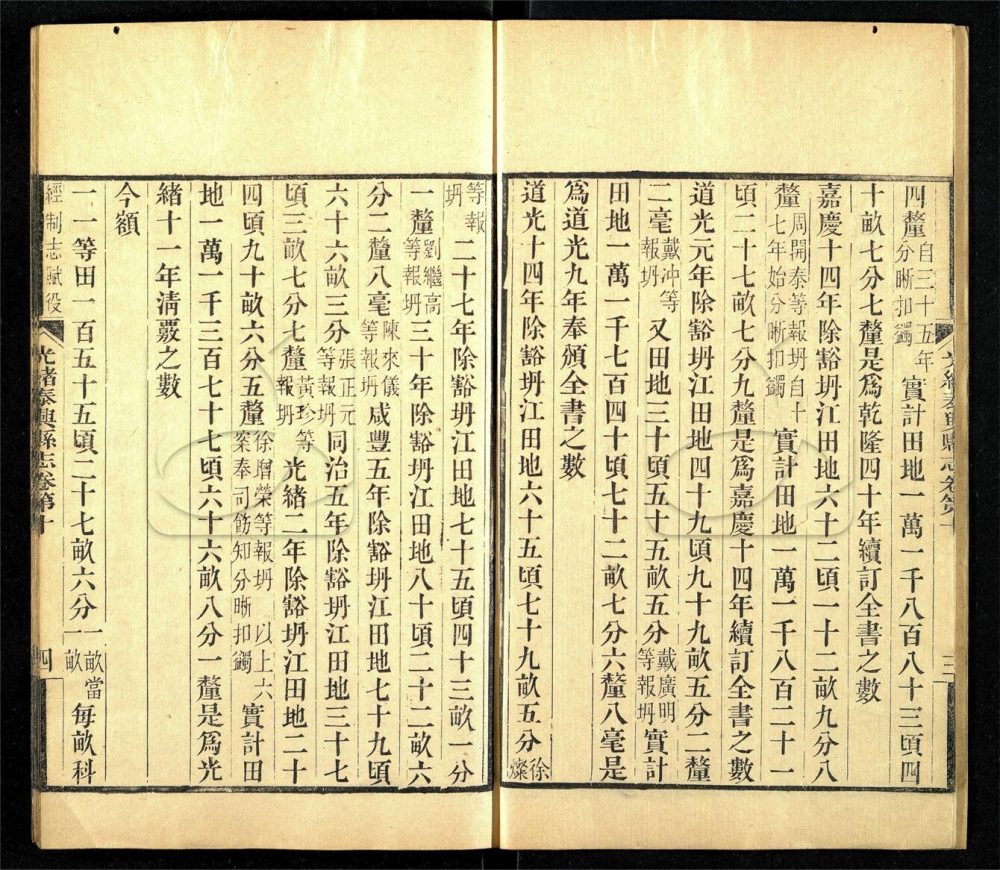 四釐自三十五年分晰扣蠲實計田地一萬一千八百八十三頃四
十畝七分七釐是爲乾隆四十年續訂全書之數
嘉慶十四年除豁坍江田地六十二頃一十二畝九分八
釐周開泰等報坍自十七年始分晰扣蠲實計田地一萬一千八百二十一
頃二十七畝七分九釐是爲嘉慶十四年續訂全書之數
道光元年除豁坍江田地四十九頃九十九畝五分二釐
二毫戴冲等報坍又田地三十頃五十五畝五分戴廣明等報坍實計
田地一萬一千七百四十頃七十二畝七分六釐八毫是
爲道光九年奉頒全書之數
道光十四年除豁坍江田地六十五頃七十九畝五分徐燦
等報坍二十七年除豁坍江田地七十五頃四十三畝一分
一釐劉繼高等報坍三十年除豁坍江田地八十頃二十二畝六
分二釐八毫陳來儀等報坍咸豐五年除豁坍江田地七十九頃
六十六畝三分張正元等報坍同治五年除豁坍江田地三十七
頃三畝七分七釐黃珍等報坍光緒二年除豁坍江田地二十
四頃九十畝六分五釐徐增榮等報坍以上六案奉司飭知分晰扣蠲實計田
地一萬一千三百七十七頃六十六畝八分一釐是爲光
緒十一年清覈之數
今額
一一等田一百五十五頃二十七畝六分一畝當一畝每畝科
經制志賦役
光緒泰興縣志卷第十
四
三